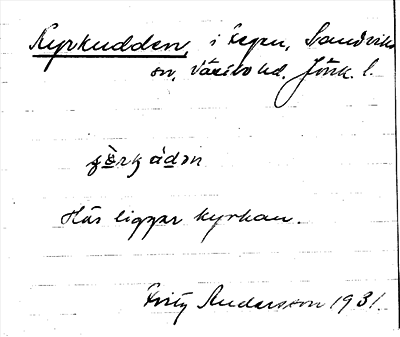 Kyrkudden, i Segru, Sandviks
sn, Västbo hd. Jönk. l.
Här ligger kyrkan.
Fritz Andersson 1931.